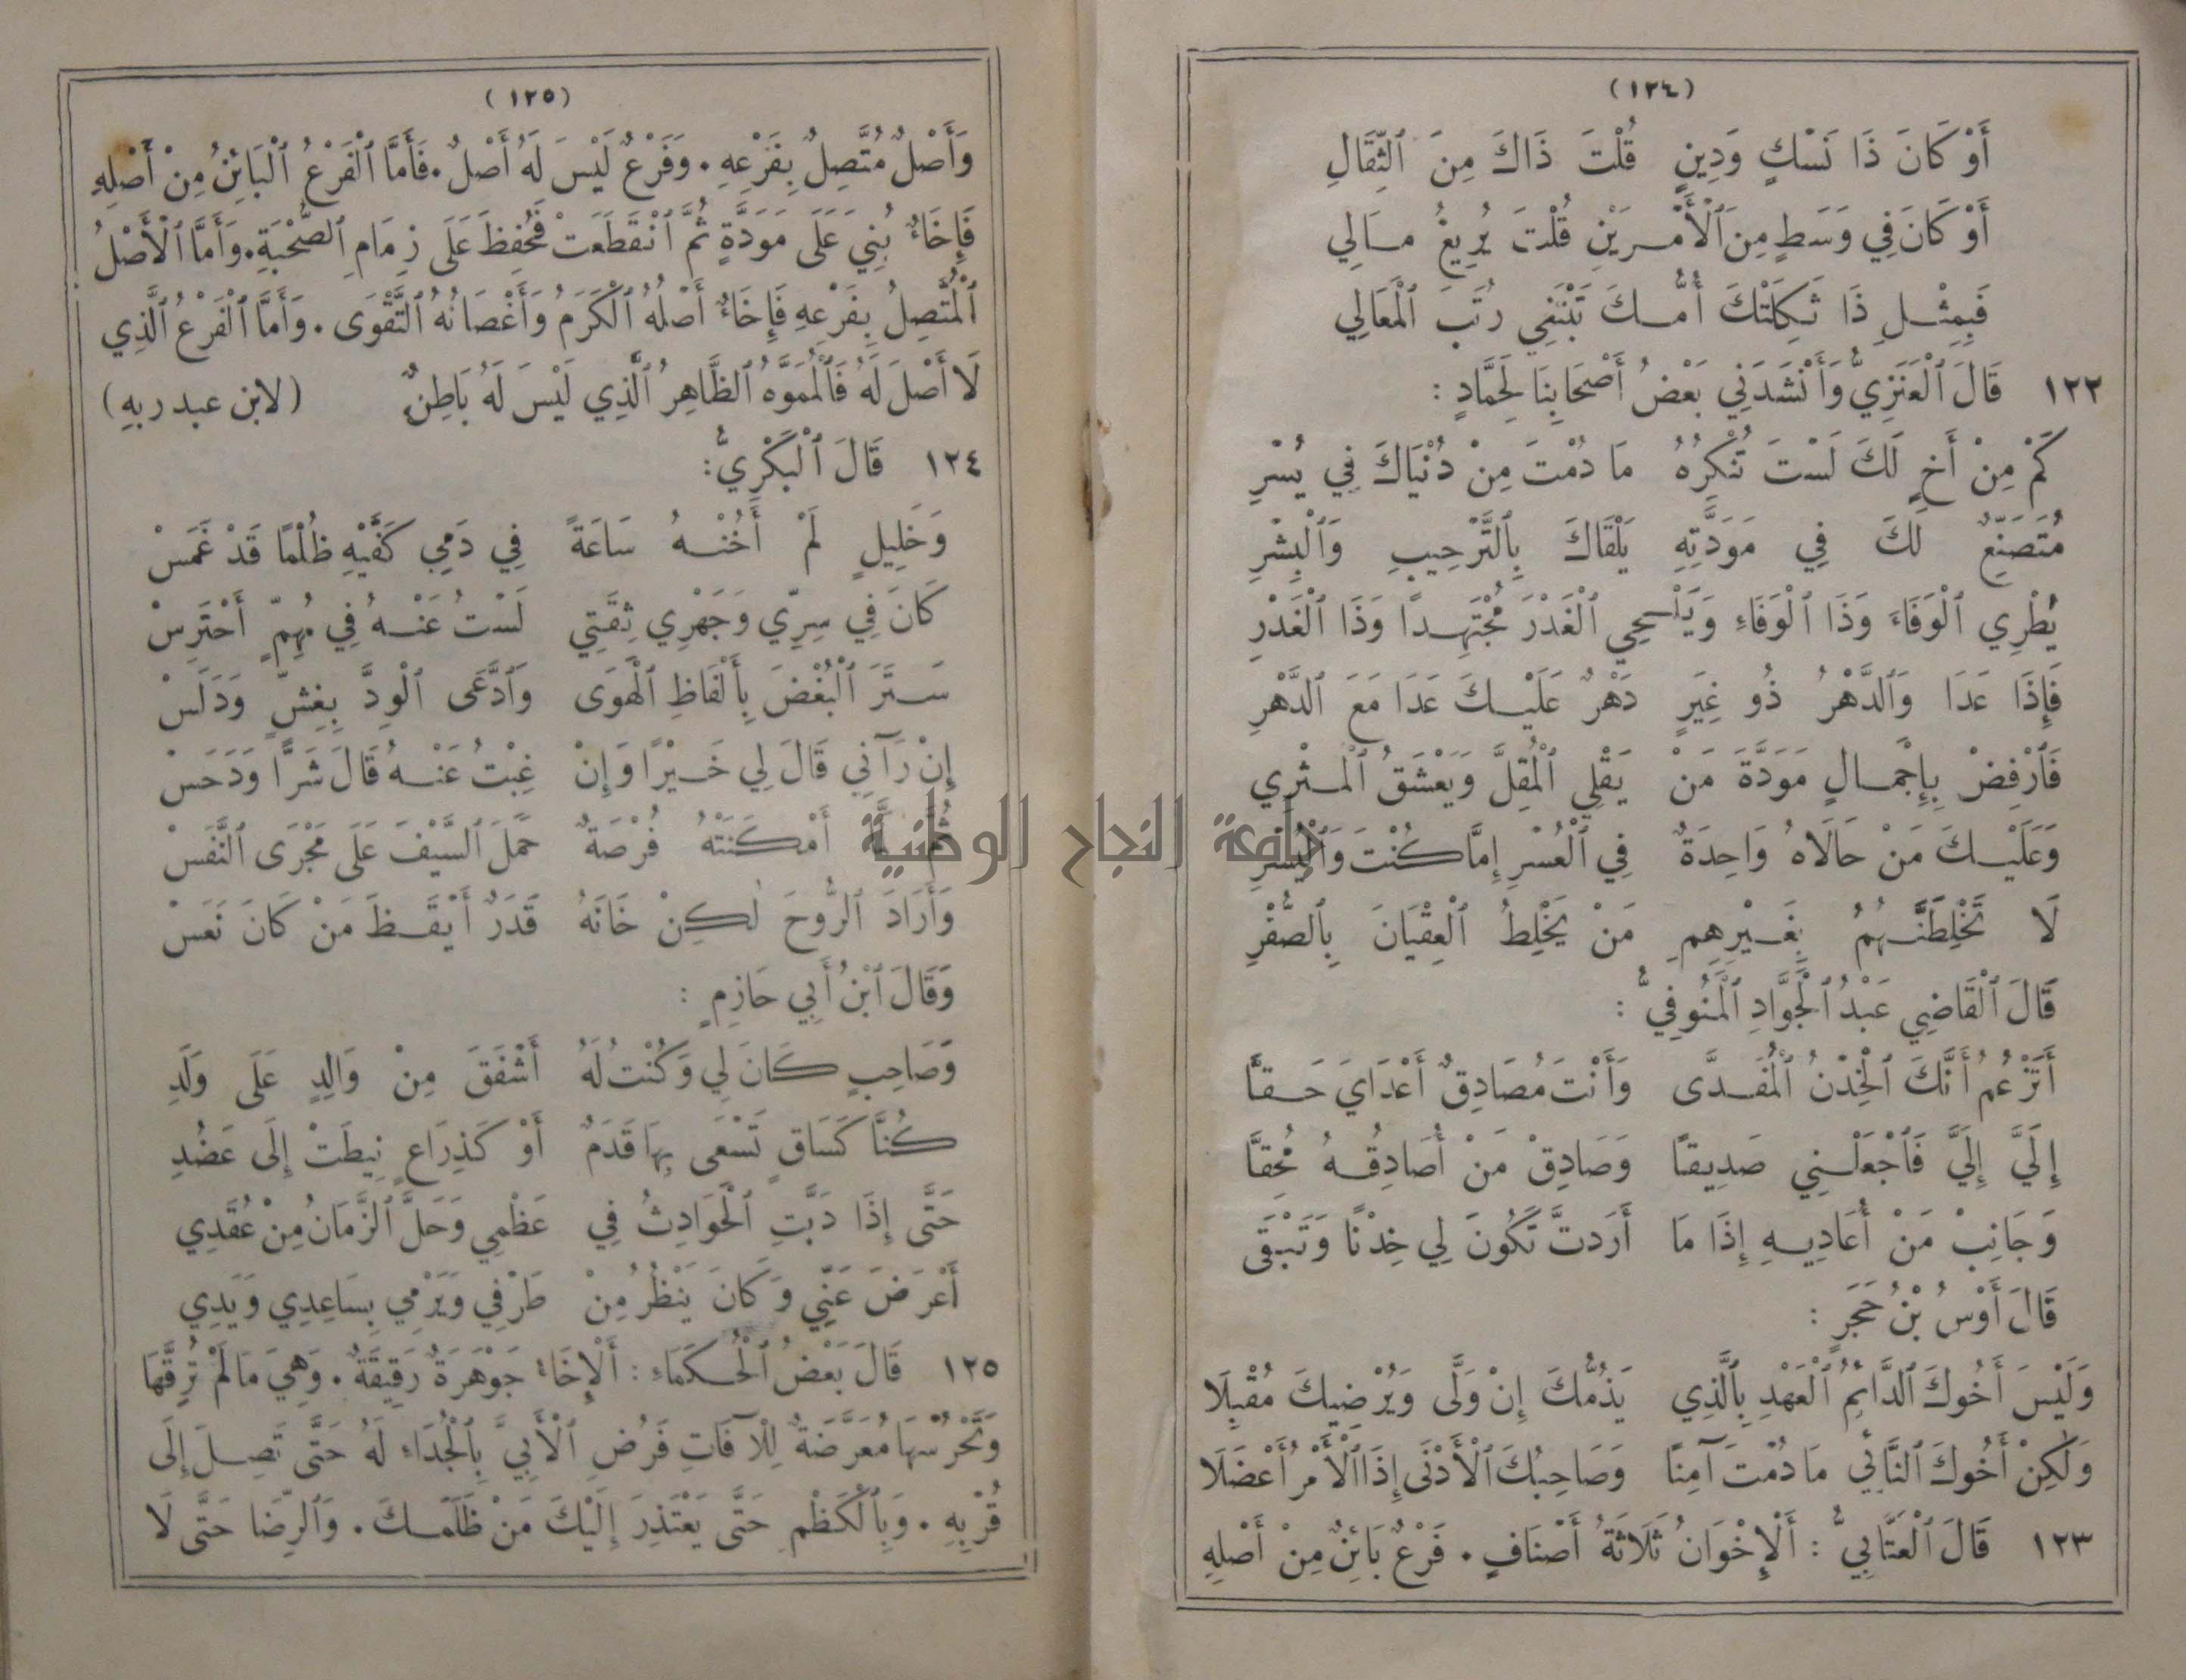 (١٢٤)
أَوْ كَانَ ذَا نَسْكٍ وَدِينٍ قُلْتَ ذَاكَ مِنَ ٱلثِّقَالِ
أَوْ كَانَ فِي وَسَطٍ مِنَ ٱلْأَمْرَيْنِ قُلْتَ يُرِيغُ مَالِي
فَبِمِثْلِ ذَا ثَكِلَتْكَ أُمُّكَ تَبْتَغِي رُتَبَ ٱلْمَعَالِي
١٢٢ قَالَ ٱلْعَنَزِيُّ وَأَنْشَدَنِي بَعْضُ أَصْحَابِنَا لِحَمَّادٍ :
كَمْ مِنْ أَخٍ لَكَ لَسْتَ تُنْكِرُهُ مَا دُمْتَ مِنْ دُنْيَاكَ فِي يُسْرِ
مُتَصَنِّعٌ لَكَ فِي مَوَدَّتِهِ يَلْقَاكَ بِٱلتَّرْحِيبِ وَٱلْبِشْرِ
يُطْرِي ٱلْوَفَاءَ وَذَا ٱلْوَفَاءِ وَيَلْحِي ٱلْغَدْرَ مُجْتَهِدًا وَذَا ٱلْغَدْرِ
فَإِذَا عَدَا وَٱلدَّهْرُ ذُو غِيَرٍ دَهْرٌ عَلَيْكَ عَدَا مَعَ ٱلدَّهْرِ
فَٱرْفِضْ بِإِجْمَالٍ مَوَدَّةَ مَنْ يَقْلِي ٱلْمُقِلَّ وَيَعْشَقُ ٱلْمُثْرِي
وَعَلَيْكَ مَنْ حَالَاهُ وَاحِدَةٌ فِي ٱلْعُسْرِ إِمَّا كُنْتَ وَٱلْيُسْرِ
لَا تَخْلِطَنَّهُمْ بِغَيْرِهِمِ مَنْ يَخْلِطُ ٱلْعِقْيَانَ بِٱلصُّفْرِ
قَالَ ٱلْقَاضِي عَبْدُ ٱلْجَوَّادِ ٱلْمَنُوفِيُّ :
أَتَزْعُمُ أَنَّكَ ٱلْخِدْنُ ٱلْمُفَدَّى وَأَنْتَ مُصَادِقٌ أَعْدَايَ حَقًّا
إِلَيَّ إِلَيَّ فَٱجْعَلْنِي صَدِيقًا وَصَادِقْ مَنْ أُصَادِقُهُ مُحِقًّا
وَجَانِبْ مَنْ أُعَادِيهِ إِذَا مَا أَرَدتَّ تَكُونَ لِي خِدْنًا وَتَبْقَى
قَالَ أَوْسُ بْنُ حَجَرٍ :
وَلَيْسَ أَخُوكَ ٱلدَّائِمُ ٱلْعَهْدِ بِٱلَّذِي يَذُمُّكَ إِنْ وَلَّى وَيُرْضِيكَ مُقْبِلَا
وَلَكِنْ أَخُوكَ ٱلنَّائِي مَا دُمْتَ آمِنًا وَصَاحِبُكَ ٱلْأَدْنَى إِذَا ٱلْأَمْرُ أَعْضَلَا
١٢٣ قَالَ ٱلْعَتَّابِيُّ : أَلْإِخْوَانُ ثَلَاثَةُ أَصْنَافٍ . فَرْعٌ بَائِنٌ مِنْ أَصْلِهِ
(١٢٥)
وَأَصْلٌ مُتَّصِلٌ بِفَرْعِهِ . وَفَرْعٌ لَيْسَ لَهُ أَصْلٌ . فَأَمَّا ٱلْفَرْعُ ٱلْبَائِنُ مِنْ أَصْلِهِ
فَإِخَاءٌ بُنِيَ عَلَى مَوَدَّةٍ ثُمَّ ٱنْقَطَعَتْ فَحُفِظَ عَلَى زِمَامِ ٱلصُّحْبَةِ . وَأَمَّا ٱلْأَصْلُ
ٱلْمُتَّصِلُ بِفَرْعِهِ فَإِخَاءٌ أَصْلُهُ ٱلْكَرَمُ وَأَغْصَانُهُ ٱلتَّقْوَى . وَأَمَّا ٱلْفَرْعُ ٱلَّذِي
لَا أَصْلَ لَهُ فَٱلْمُمَوَّهُ ٱلظَّاهِرُ ٱلَّذِي لَيْسَ لَهُ بَاطِنٌ (لابن عبد ربهِ)
١٢٤ قَالَ ٱلْبَكْرِيُّ :
وَخَلِيلٍ لَمْ أَخُنْهُ سَاعَةً فِي دَمِي كَفَّيْهِ ظُلْمًا قَدْ غَمَسْ
كَانَ فِي سِرِّي وَجَهْرِي ثِقَتِي لَسْتُ عَنْهُ فِي مُهِمٍّ أَحْتَرِسْ
سَتَرَ ٱلْبُغْضَ بِأَلْفَاظِ ٱلْهَوَى وَٱدَّعَى ٱلْوِدَّ بِغِشٍّ وَدَلَسْ
إِنْ رَآنِي قَالَ لِي خَيْرًا وَإِنْ غِبْتُ عَنْهُ قَالَ شَرًّا وَدَحَسْ
ثُمَّ لَمَّا أَمْكَنَتْهُ فُرْصَةٌ حَمَلَ ٱلسَّيْفَ عَلَى مَجْرَى ٱلنَّفَسْ
وَأَرَادَ ٱلرُّوحَ لٰكِنْ خَانَهُ قَدَرٌ أَيْقَظَ مَنْ كَانَ نَعَسْ
وَقَالَ ٱبْنُ أَبِي حَازِمٍ :
وَصَاحِبٍ كَانَ لِي وَكُنْتُ لَهُ أَشْفَقَ مِنْ وَالِدٍ عَلَى وَلَدِ
كُنَّا كَسَاقٍ تَسْعَى بِهَا قَدَمٌ أَوْ كَذِرَاعٍ نِيطَتْ إِلَى عَضُدِ
حَتَّى إِذَا دَبَّتِ ٱلْحَوَادِثُ فِي عَظْمِي وَحَلَّ ٱلزَّمَانُ مِنْ عُقَدِي
أَعْرَضَ عَنِّي وَكَانَ يَنْظُرُ مِنْ طَرْفِي وَيَرْمِي بِسَاعِدِي وَيَدِي
١٢٥ قَالَ بَعْضُ ٱلْحُكَمَاءِ : أَلْإِخَاءُ جَوْهَرَةٌ رَقِيقَةٌ . وَهِيَ مَا لَمْ تُرَقِّهَا
وَتَحْرُسْهَا مُعَرَّضَةٌ لِلْآفَاتِ فَرُضِ ٱلْأَبِيَّ بِٱلْجُدَاءِ لَهُ حَتَّى تَصِلَ إِلَى
قُرْبِهِ . وَبِٱلْكَظْمِ حَتَّى يَعْتَذِرَ إِلَيْكَ مَنْ ظَلَمَكَ . وَٱلرِّضَا حَتَّى لَا
جامعة النجاح الوطنية